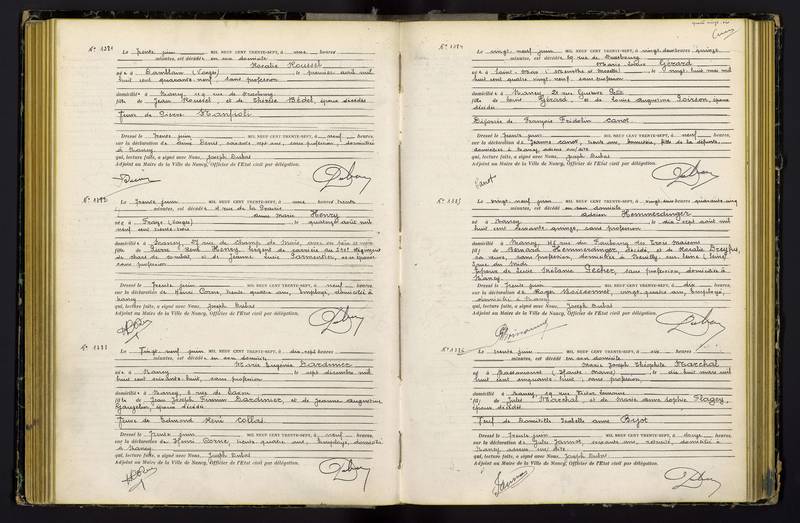 N° 1381
Le trente juin MIL NEUF CENT TRENTE-SEPT, à une heures
minutes, est décédée en son domicile
Rosalie Rousset
née à (Vosges), le premier avril mil
huit cent quarante neuf, sans profession
domiciliée à Nancy, rue de
fille de Jean Rousset, et de Thérèse Bédel, époux décédés
Veuve de Pierre Manfioli
Dressé le trente juin MIL NEUF CENT TRENTE-SEPT, à neuf heures,
sur la déclaration de Denis, soixante sept ans, sans profession, domiciliée
à Nancy
qui, lecture faite, a signé avec Nous, Joseph Dubas
Adjoint au Maire de la Ville de Nancy, Officier de l'Etat civil par délégation.
N° 1382
Le trente juin MIL NEUF CENT TRENTE-SEPT, à une heures trente
minutes, est décédée rue de la Prairie
Anne Marie Henry
née à Fraize (Vosges), le quatorze août mil
neuf cent trente trois
domiciliée à Nancy, rue du Champ de Mars, avec ses père et mère
fille de Pierre René Henry, sergent de carrière au régiment
de chars de combat, et de Jeanne Lucie Parmentier, son épouse
sans profession
Dressé le trente juin MIL NEUF CENT TRENTE-SEPT, à neuf heures,
sur la déclaration de Henri Corne, trente quatre ans, employé, domicilié à
Nancy
qui, lecture faite, a signé avec Nous, Joseph Dubas
Adjoint au Maire de la Ville de Nancy, Officier de l'Etat civil par délégation.
N° 1383
Le vingt neuf juin MIL NEUF CENT TRENTE-SEPT, à dix sept heures
minutes, est décédée en son domicile
Marie Eugénie Gardinier
née à Nancy, le sept décembre mil
huit cent soixante huit, sans profession
domiciliée à Nancy, rue de
fille de Jean Joseph Firmin Gardinier, et de Jeanne Augustine
époux décédés
Veuve de Edmond René Collas
Dressé le trente juin MIL NEUF CENT TRENTE-SEPT, à neuf heures,
sur la déclaration de Henri Corne, trente quatre ans, employé, domicilié
à Nancy
qui, lecture faite, a signé avec Nous, Joseph Dubas
Adjoint au Maire de la Ville de Nancy, Officier de l'Etat civil par délégation.
N° 1384
Le vingt neuf juin MIL NEUF CENT TRENTE-SEPT, à vingt deux heures quinze
minutes, est décédée rue de Strasbourg
Marie Louise Gérard
née à Saint-Max (Meurthe et Moselle), le vingt huit mai mil
huit cent quatre vingt neuf, sans profession
domiciliée à Nancy, 21 rue Gustave
fille de Louis Gérard, et de Louise Augustine Poirson, époux
décédés
Divorcée de François Fridolin Canot
Dressé le trente juin MIL NEUF CENT TRENTE-SEPT, à neuf heures,
sur la déclaration de Jeanne Canot, trente ans, fille de la défunte,
domiciliée à Nancy, susdite
qui, lecture faite, a signé avec Nous, Joseph Dubas
Adjoint au Maire de la Ville de Nancy, Officier de l'Etat civil par délégation.
Canot
N° 1385
Le vingt neuf juin MIL NEUF CENT TRENTE-SEPT, à vingt deux heures quarante cinq
minutes, est décédé en son domicile
Adrien Hemmerdinger
né à Nancy, le dix sept août mil
huit cent soixante quinze, sans profession
domicilié à Nancy, rue du Faubourg des Trois Maisons
fils de Bernard Hemmerdinger, décédé, et de Rosalie Dreyfus,
sa veuve, sans profession, domiciliée à Neuilly-sur-Seine (Seine)
Epoux de Lucie Mélanie Pecher, sans profession, domiciliée à
Nancy
Dressé le trente juin MIL NEUF CENT TRENTE-SEPT, à dix heures,
sur la déclaration de Roger Boissonnet, vingt quatre ans, employé,
domicilié à Nancy
qui, lecture faite, a signé avec Nous, Joseph Dubas
Adjoint au Maire de la Ville de Nancy, Officier de l'Etat civil par délégation.
N° 1386
Le trente juin MIL NEUF CENT TRENTE-SEPT, à six heures
minutes, est décédé en son domicile
Marie Joseph Théophile Marchal
né à Passavant (Haute Saône), le dix huit mars mil
huit cent cinquante huit, sans profession
domicilié à Nancy, rue Victor Lemoine
fils de Jules Marchal, et de Marie Anne Sophie Flagey,
époux décédés
Veuf de Isabelle Anne Bizot
Dressé le trente juin MIL NEUF CENT TRENTE-SEPT, à douze heures,
sur la déclaration de Jules Jannot, soixante ans, retraité, domicilié à
Nancy
qui, lecture faite, a signé avec Nous, Joseph Dubas
Adjoint au Maire de la Ville de Nancy, Officier de l'Etat civil par délégation.
Jannot